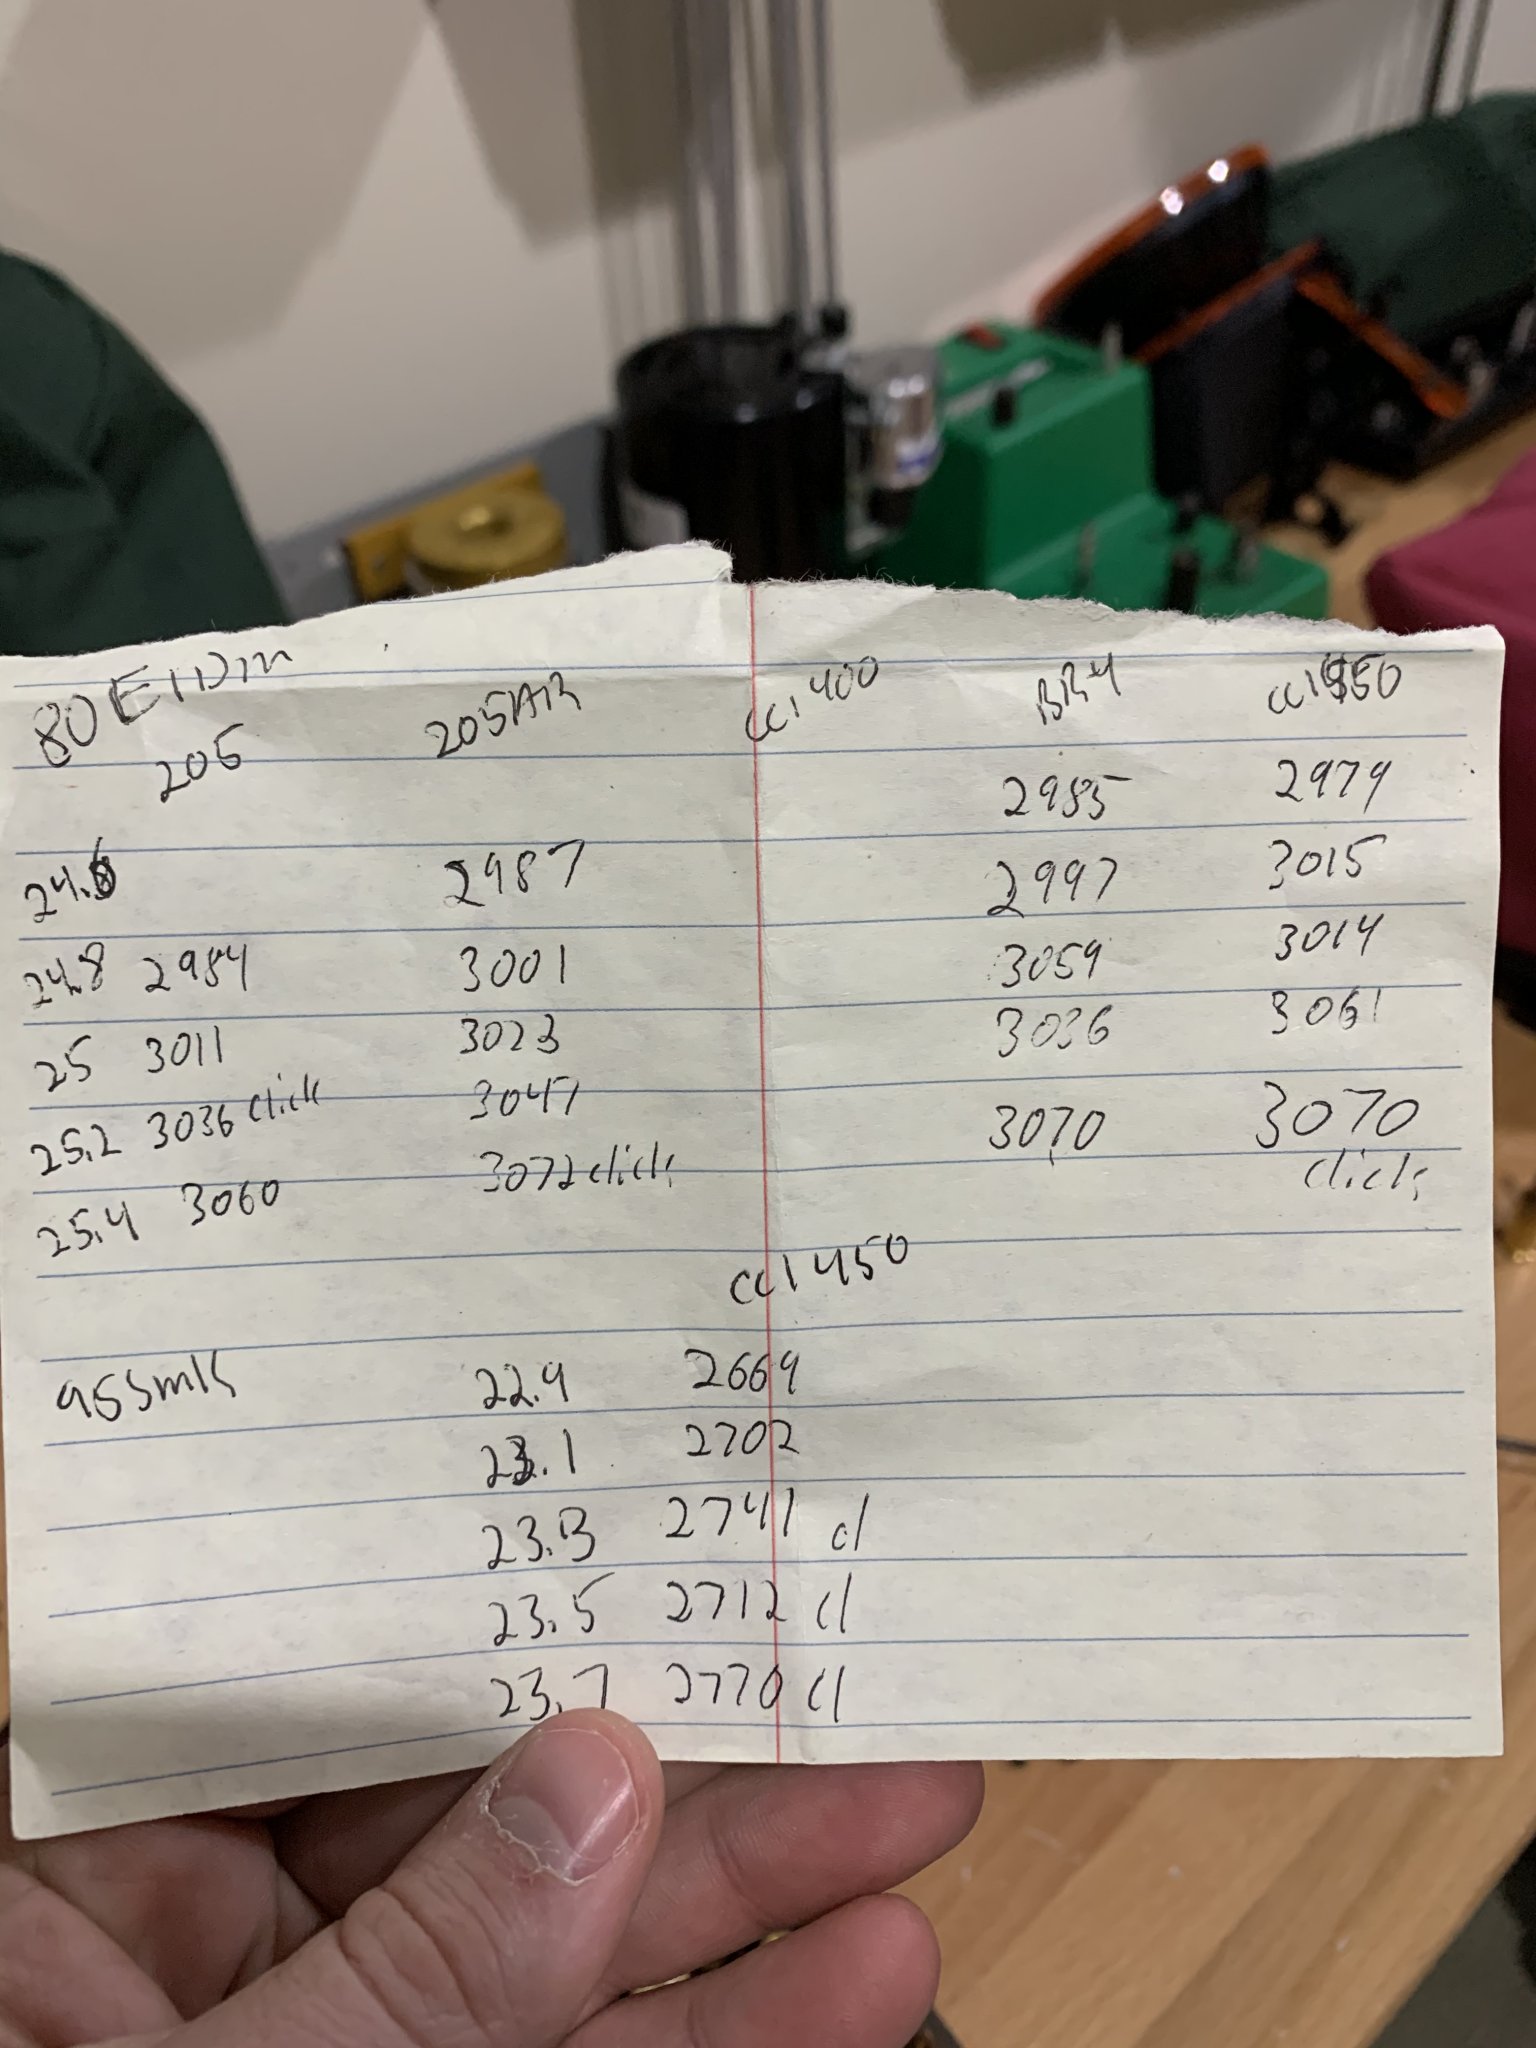 80 ElDm
205 205AR cci 400 BR4 cci 450
2985 2979
24.6 2987 2997 3015
24.8 2984 3001 3059 3014
25 3011 3023 3036 3061
25.2 3036 click 3047 3070 3070
25.4 3060 3072 click click
cci 450
95 smk 22.9 2669
23.1 2702
23.3 2741 cl
23.5 2712 cl
23.7 2770 cl